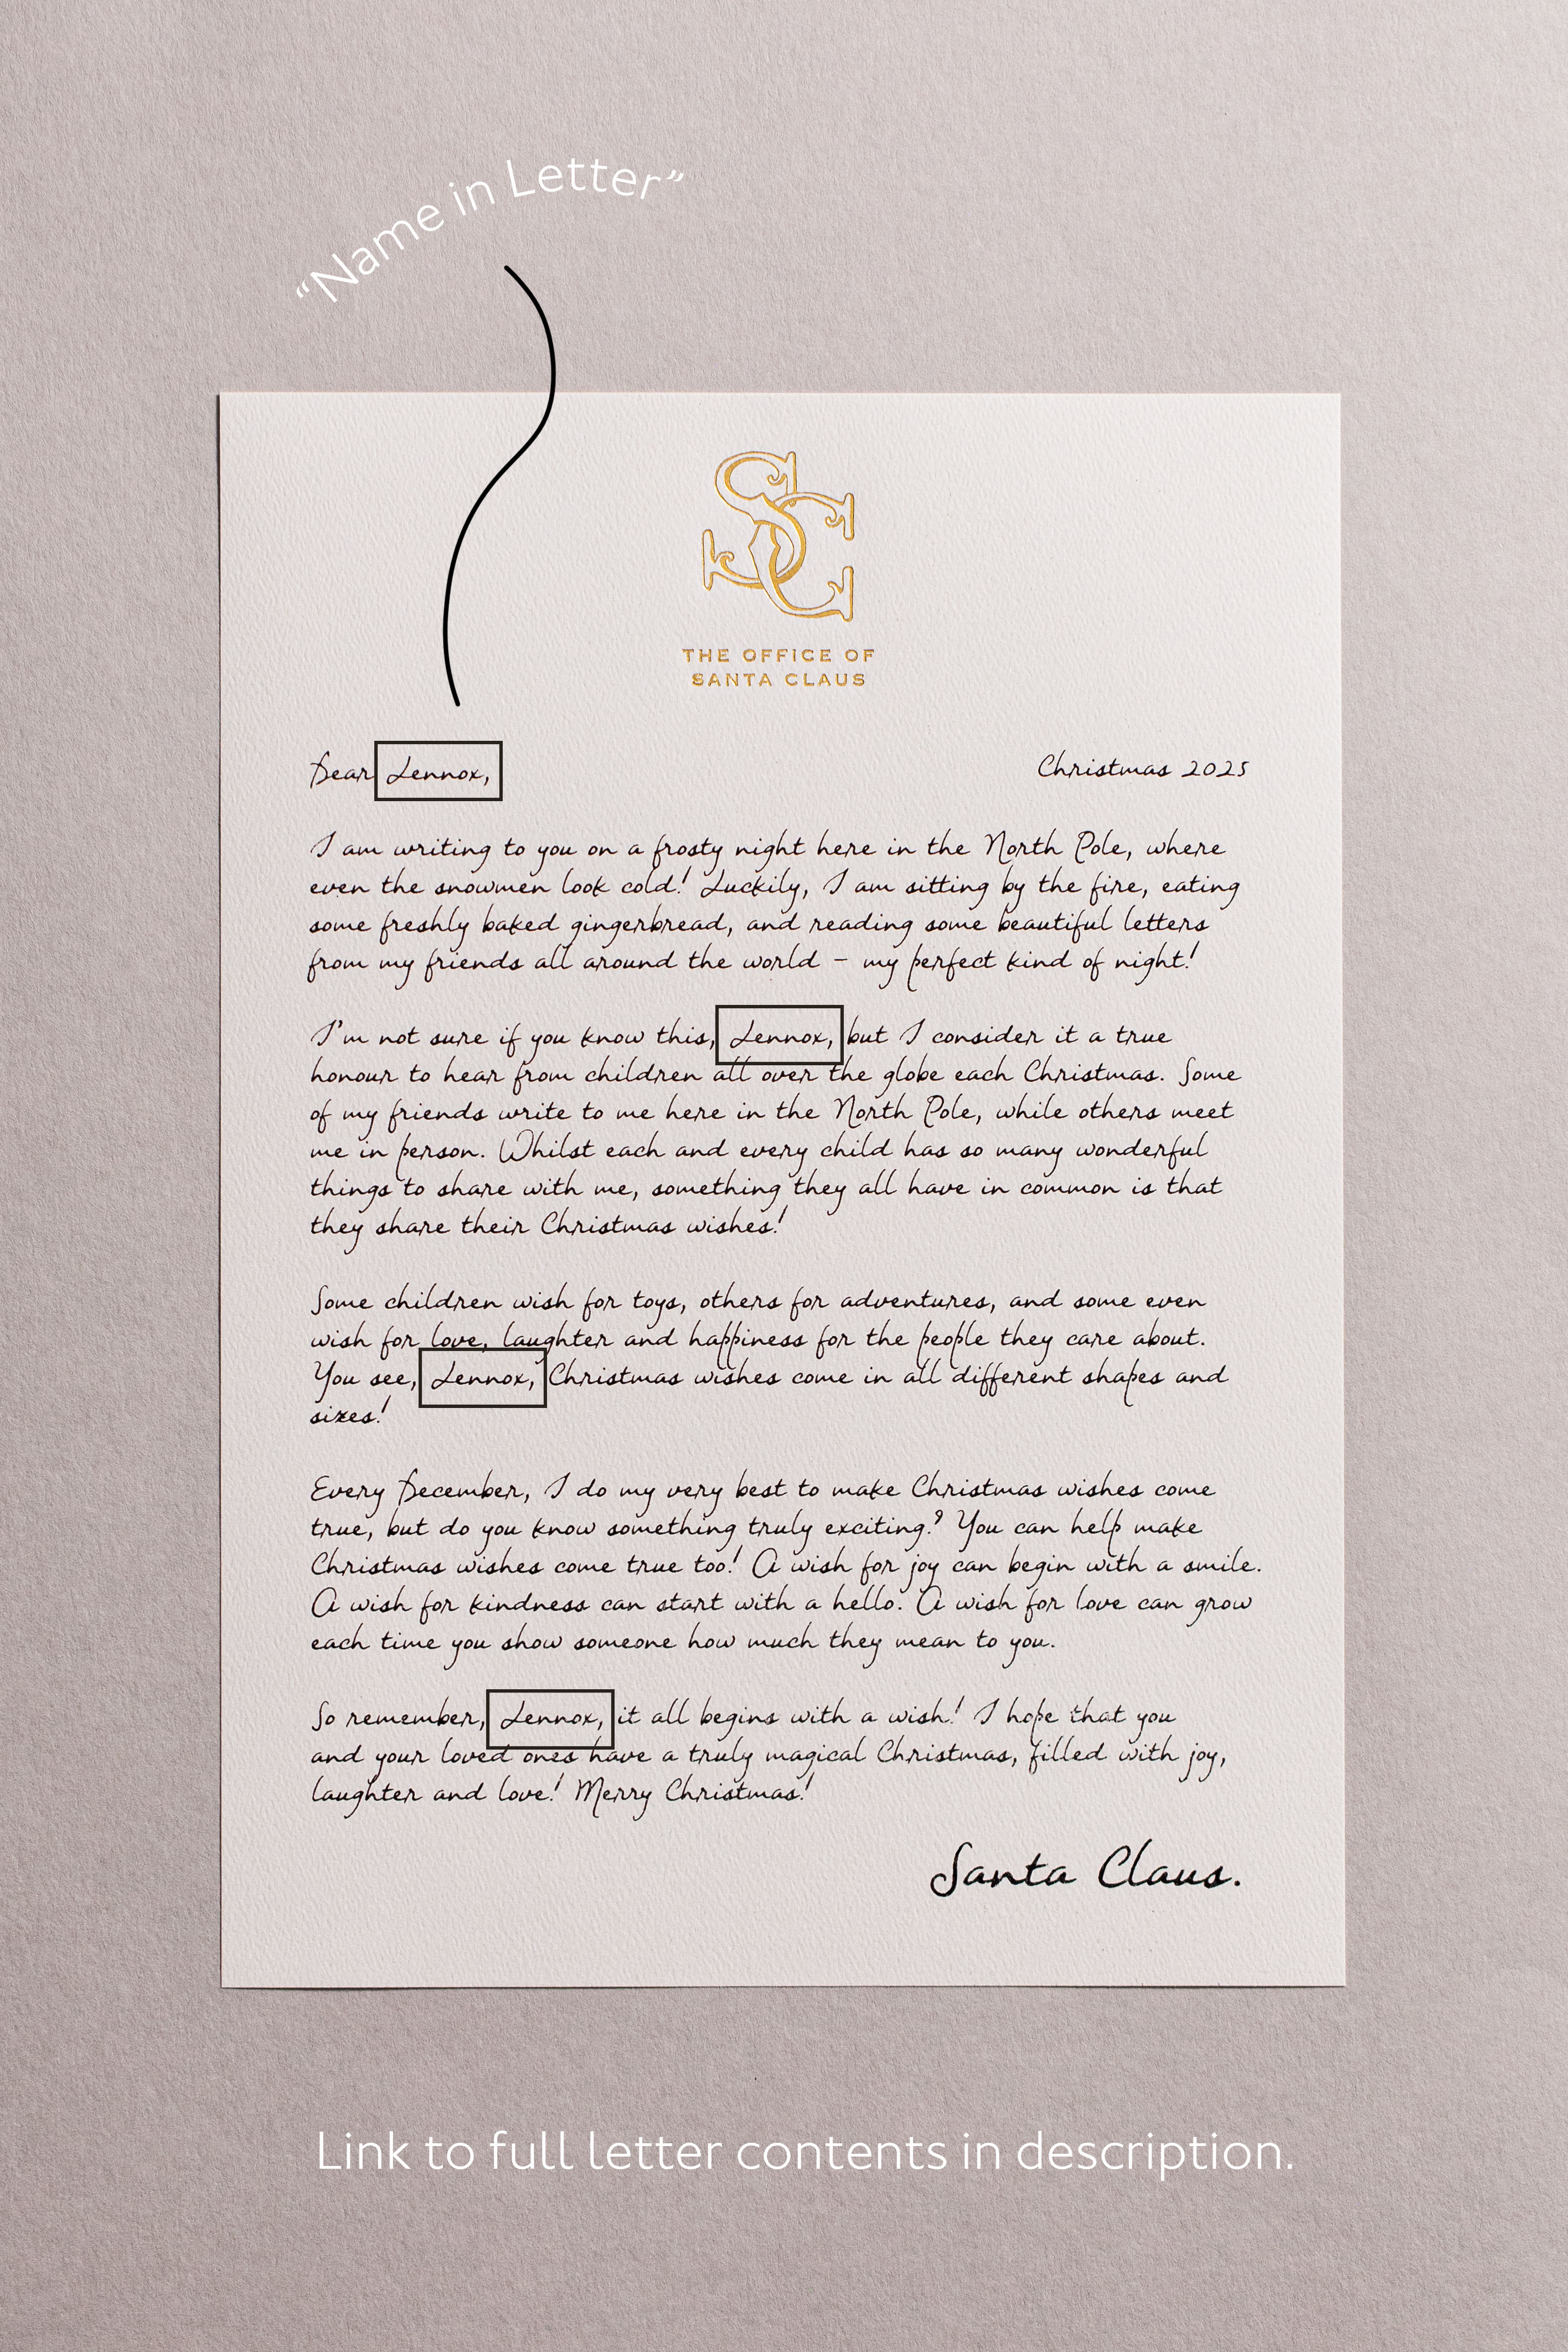 “Name in Letter”
SC
THE OFFICE OF
SANTA CLAUS
Dear Lennox,
Christmas 2025
I am writing to you on a frosty night here in the North Pole, where
even the snowmen look cold! Luckily, I am sitting by the fire, eating
some freshly baked gingerbread, and reading some beautiful letters
from my friends all around the world – my perfect kind of night!
I'm not sure if you know this, Lennox, but I consider it a true
honour to hear from children all over the globe each Christmas. Some
of my friends write to me here in the North Pole, while others meet
me in person. Whilst each and every child has so many wonderful
things to share with me, something they all have in common is that
they share their Christmas wishes!
Some children wish for toys, others for adventures, and some even
wish for love, laughter and happiness for the people they care about.
You see, Lennox, Christmas wishes come in all different shapes and
sizes!
Every December, I do my very best to make Christmas wishes come
true, but do you know something truly exciting? You can help make
Christmas wishes come true too! A wish for joy can begin with a smile.
A wish for kindness can start with a hello. A wish for love can grow
each time you show someone how much they mean to you.
So remember, Lennox, it all begins with a wish! I hope that you
and your loved ones have a truly magical Christmas, filled with joy,
laughter and love! Merry Christmas!
Santa Claus.
Link to full letter contents in description.